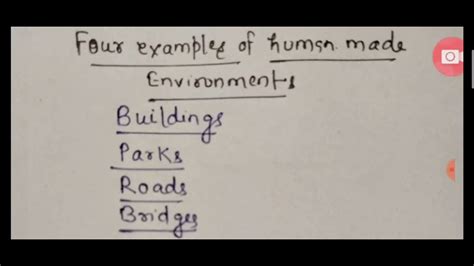 Four examples of human made
Environments
Buildings
Parks
Roads
Bridges